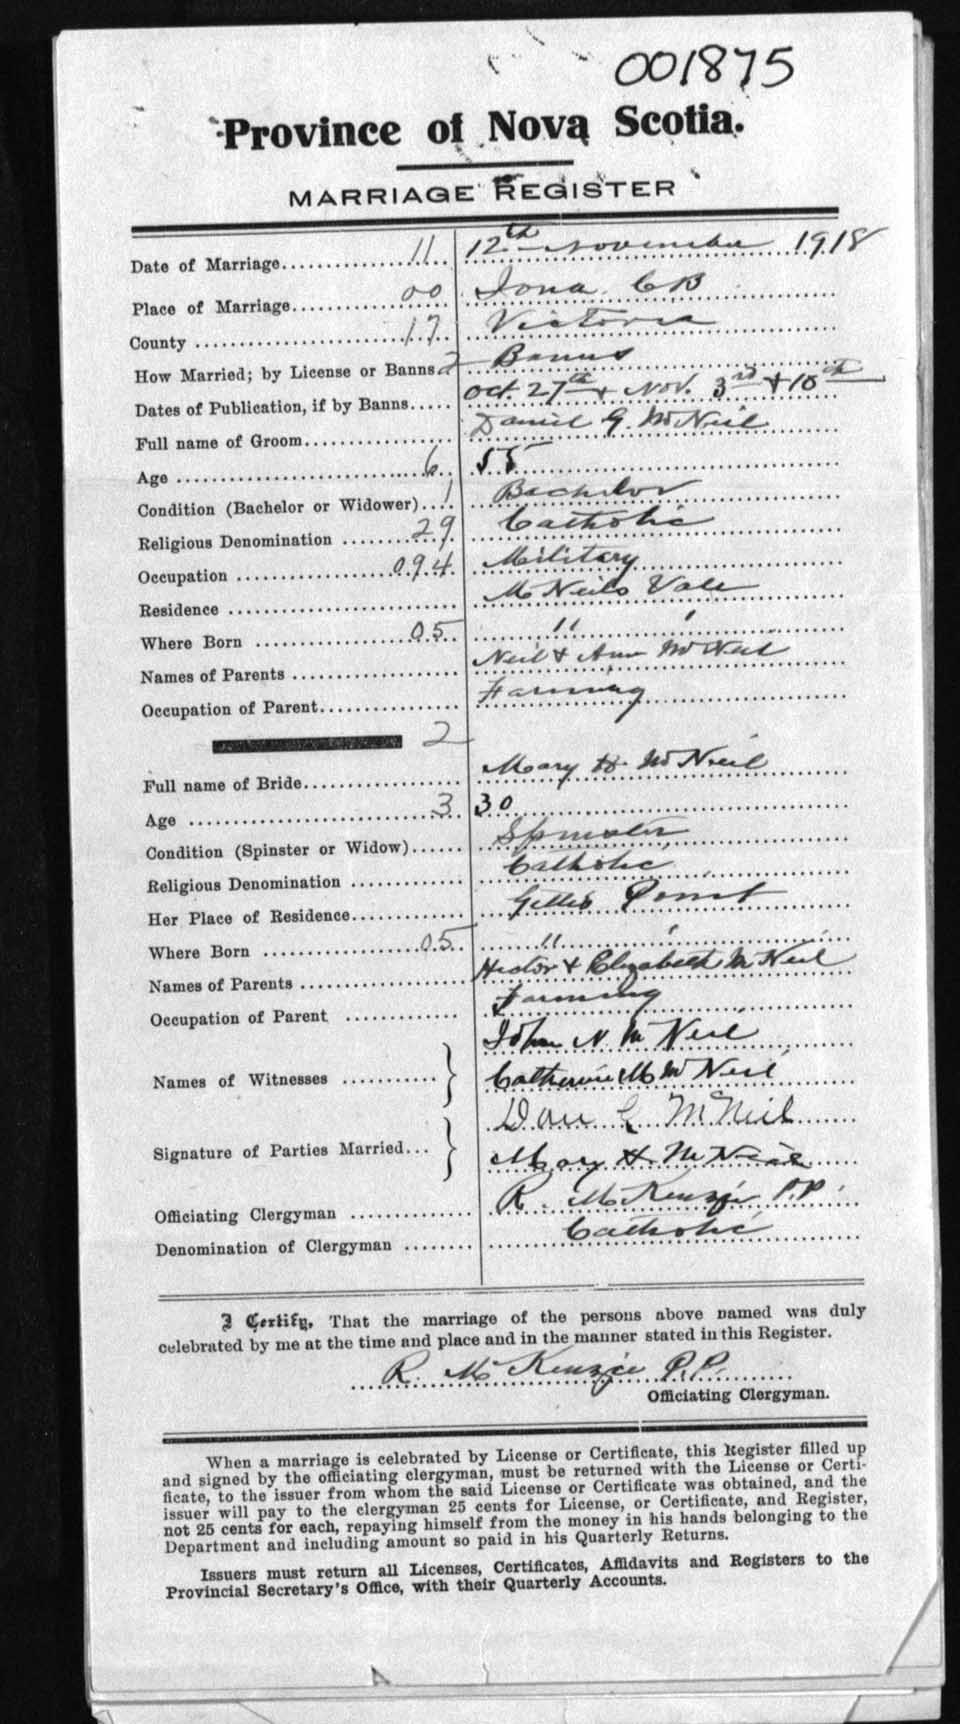 001875
Province of Nova Scotia.
MARRIAGE REGISTER
Date of Marriage 11 12th November 1918
Place of Marriage 00 Iona C B
County 17 Victoria
How Married; by License or Banns 2 Banns
Dates of Publication, if by Banns Oct. 27th & Nov. 3rd & 10th
Full name of Groom Daniel G. McNeil
Age 6 55
Condition (Bachelor or Widower) 1 Bachelor
Religious Denomination 29 Catholic
Occupation 094 Military
Residence McNeils Vale
Where Born 05 " "
Names of Parents Neil & Ann McNeil
Occupation of Parent Farming
2
Full name of Bride Mary H. McNeil
Age 3 30
Condition (Spinster or Widow) Spinster
Religious Denomination Catholic
Her Place of Residence Gillis Point
Where Born 05 " "
Names of Parents Hector & Elizabeth McNeil
Occupation of Parent Farming
John N. McNeil
Names of Witnesses
Catherine M McNeil
Dan G McNeil
Signature of Parties Married
Mary H. McNeil
Officiating Clergyman R. McKenzie P.P.
Denomination of Clergyman Catholic
I Certify, That the marriage of the persons above named was duly
celebrated by me at the time and place and in the manner stated in this Register.
R. McKenzie P.P.
Officiating Clergyman.
When a marriage is celebrated by License or Certificate, this Register filled up
and signed by the officiating clergyman, must be returned with the License or Certi-
ficate, to the issuer from whom the said License or Certificate was obtained, and the
issuer will pay to the clergyman 25 cents for License, or Certificate, and Register,
not 25 cents for each, repaying himself from the money in his hands belonging to the
Department and including amount so paid in his Quarterly Returns.
Issuers must return all Licenses, Certificates, Affidavits and Registers to the
Provincial Secretary's Office, with their Quarterly Accounts.